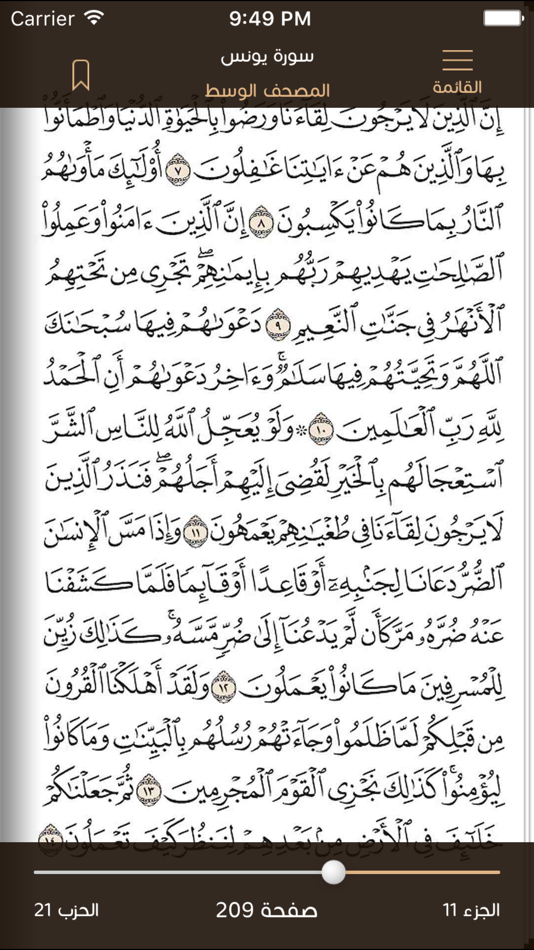 Carrier 9:49 PM
سورة يونس
المصحف الوسط
القائمة
إِنَّ ٱلَّذِينَ لَا يَرْجُونَ لِقَآءَنَا وَرَضُوا۟ بِٱلْحَيَوٰةِ ٱلدُّنْيَا وَٱطْمَأَنُّوا۟
بِهَا وَٱلَّذِينَ هُمْ عَنْ ءَايَٰتِنَا غَٰفِلُونَ ٧ أُو۟لَٰٓئِكَ مَأْوَىٰهُمُ
ٱلنَّارُ بِمَا كَانُوا۟ يَكْسِبُونَ ٨ إِنَّ ٱلَّذِينَ ءَامَنُوا۟ وَعَمِلُوا۟
ٱلصَّٰلِحَٰتِ يَهْدِيهِمْ رَبُّهُم بِإِيمَٰنِهِمْ ۖ تَجْرِى مِن تَحْتِهِمُ
ٱلْأَنْهَٰرُ فِى جَنَّٰتِ ٱلنَّعِيمِ ٩ دَعْوَىٰهُمْ فِيهَا سُبْحَٰنَكَ
ٱللَّهُمَّ وَتَحِيَّتُهُمْ فِيهَا سَلَٰمٌ ۚ وَءَاخِرُ دَعْوَىٰهُمْ أَنِ ٱلْحَمْدُ
لِلَّهِ رَبِّ ٱلْعَٰلَمِينَ ١٠ ۞ وَلَوْ يُعَجِّلُ ٱللَّهُ لِلنَّاسِ ٱلشَّرَّ
ٱسْتِعْجَالَهُم بِٱلْخَيْرِ لَقُضِىَ إِلَيْهِمْ أَجَلُهُمْ ۖ فَنَذَرُ ٱلَّذِينَ
لَا يَرْجُونَ لِقَآءَنَا فِى طُغْيَٰنِهِمْ يَعْمَهُونَ ١١ وَإِذَا مَسَّ ٱلْإِنسَٰنَ
ٱلضُّرُّ دَعَانَا لِجَنۢبِهِۦٓ أَوْ قَاعِدًا أَوْ قَآئِمًا فَلَمَّا كَشَفْنَا
عَنْهُ ضُرَّهُۥ مَرَّ كَأَن لَّمْ يَدْعُنَآ إِلَىٰ ضُرٍّ مَّسَّهُۥ ۚ كَذَٰلِكَ زُيِّنَ
لِلْمُسْرِفِينَ مَا كَانُوا۟ يَعْمَلُونَ ١٢ وَلَقَدْ أَهْلَكْنَا ٱلْقُرُونَ
مِن قَبْلِكُمْ لَمَّا ظَلَمُوا۟ وَجَآءَتْهُمْ رُسُلُهُم بِٱلْبَيِّنَٰتِ وَمَا كَانُوا۟
لِيُؤْمِنُوا۟ ۚ كَذَٰلِكَ نَجْزِى ٱلْقَوْمَ ٱلْمُجْرِمِينَ ١٣ ثُمَّ جَعَلْنَٰكُمْ
خَلَٰٓئِفَ فِى ٱلْأَرْضِ مِنۢ بَعْدِهِمْ لِنَنظُرَ كَيْفَ تَعْمَلُونَ ١٤
الجزء 11 صفحة 209 الحزب 21